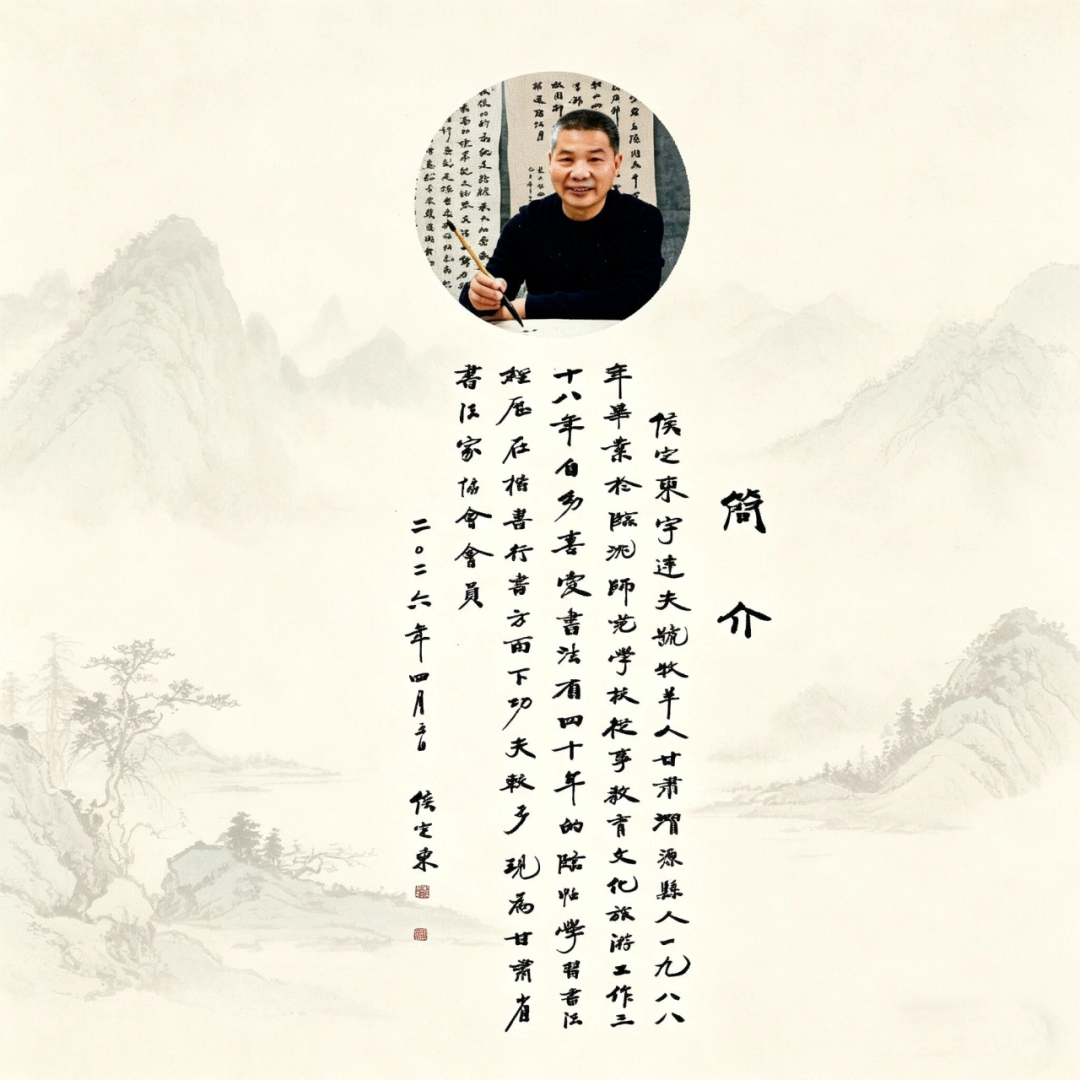 簡介
侯定東字達夫號牧羊人甘肅渭源縣人一九八八
年畢業於臨洮師范學校從事教育文化旅游工作三
十八年自幼喜愛書法有四十年的臨帖學習書法
經歷在楷書行書方面下功夫較多現為甘肅省
書法家協會會員
二〇二六年四月 侯定東